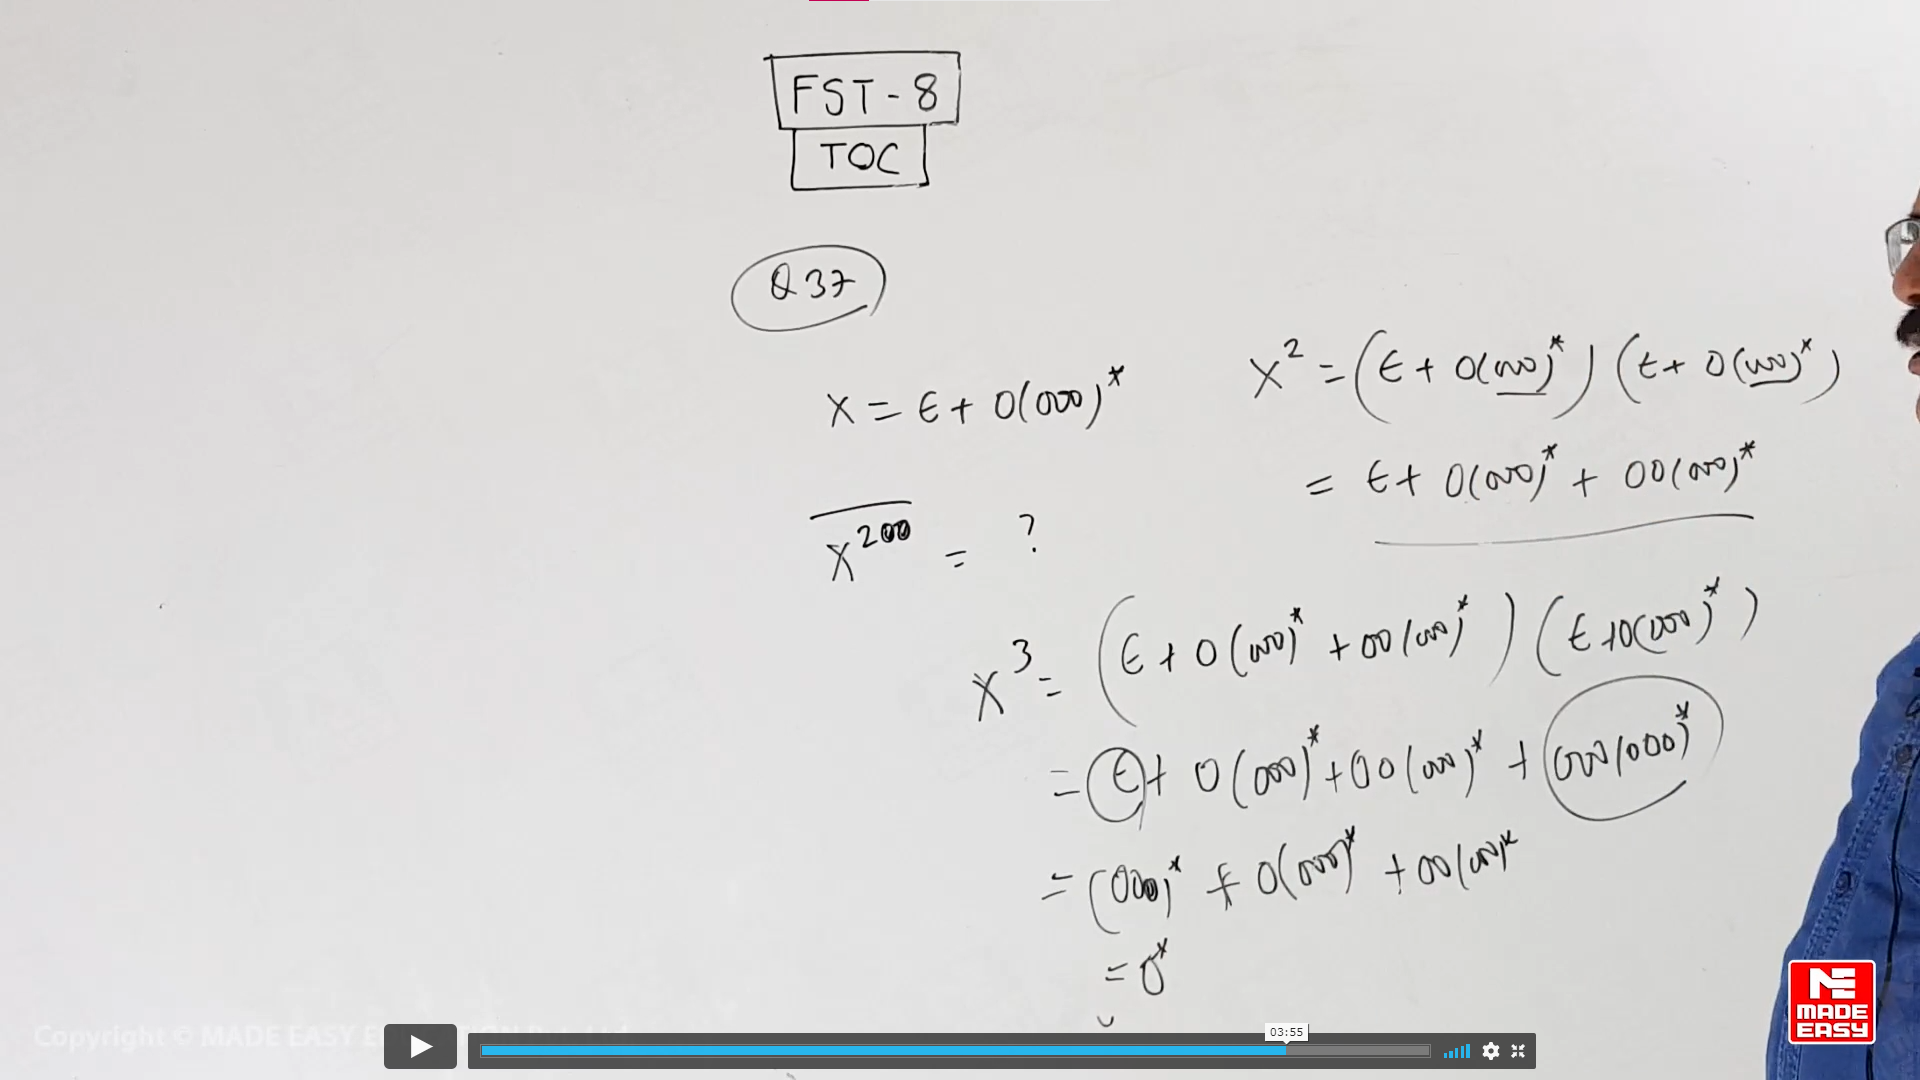 FST-8
TOC
Q 37
X = ε + 0(000)*
X² = (ε + 0(000)*) (ε + 0(000)*)
= ε + 0(000)* + 00(000)*
X²⁰⁰ = ?
X³ = (ε + 0(000)* + 00(000)*) (ε + 0(000)*)
= ε + 0(000)* + 00(000)* + 000(000)*
= (000)* + 0(000)* + 00(000)*
= 0*
Copyright © MADE EASY
03:55
ME
MADE
EASY